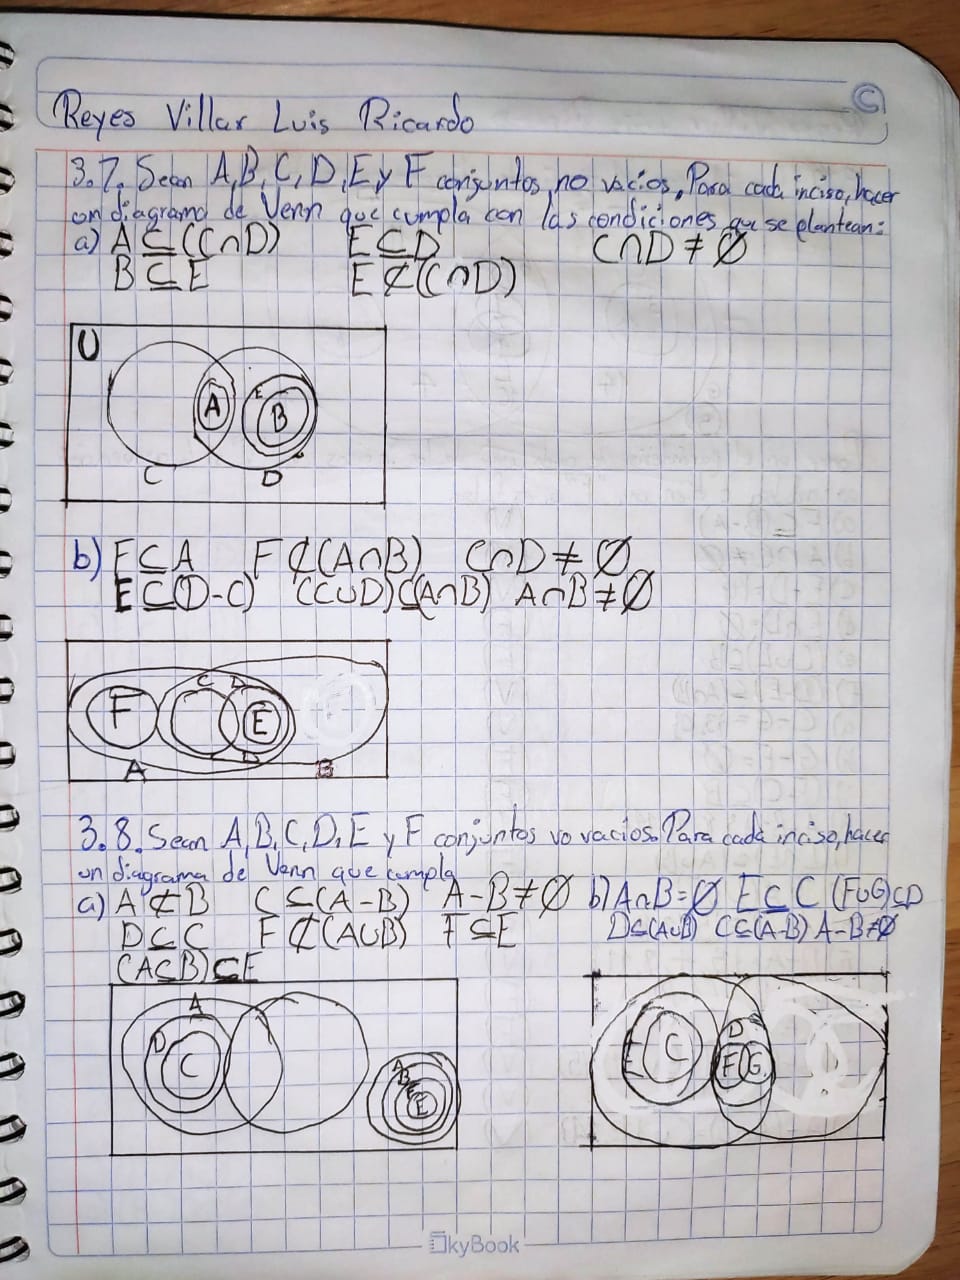 Reyes Villar Luis Ricardo
3.7. Sean A, B, C, D, E y F conjuntos no vacios. Para cada inciso, hacer
un diagrama de Venn que cumpla con las condiciones que se plantean:
a) A ⊆ (C∩D) E ⊆ D C∩D ≠ Ø
B ⊆ E E ⊄ (C∩D)
U
A E B
C D
b) F ⊆ A F ⊄ (A∩B) C∩D ≠ Ø
E ⊆ (D-C) (C∪D) ⊆ (A∩B) A∩B ≠ Ø
C D
F E
D
A B
3.8. Sean A, B, C, D, E y F conjuntos vo vacios. Para cada inciso, hacer
un diagrama de Venn que cumpla
a) A ⊄ B C ⊆ (A-B) A-B ≠ Ø b) A∩B = Ø E ⊆ C (F∪G) ⊂ D
D ⊆ C F ⊄ (A∪B) F ⊆ E D ⊆ (A∪B) C ⊆ (A-B) A-B ≠ Ø
(A ⊆ B) ⊆ E
A
D C
A B E
E
D
E C F G
SkyBook